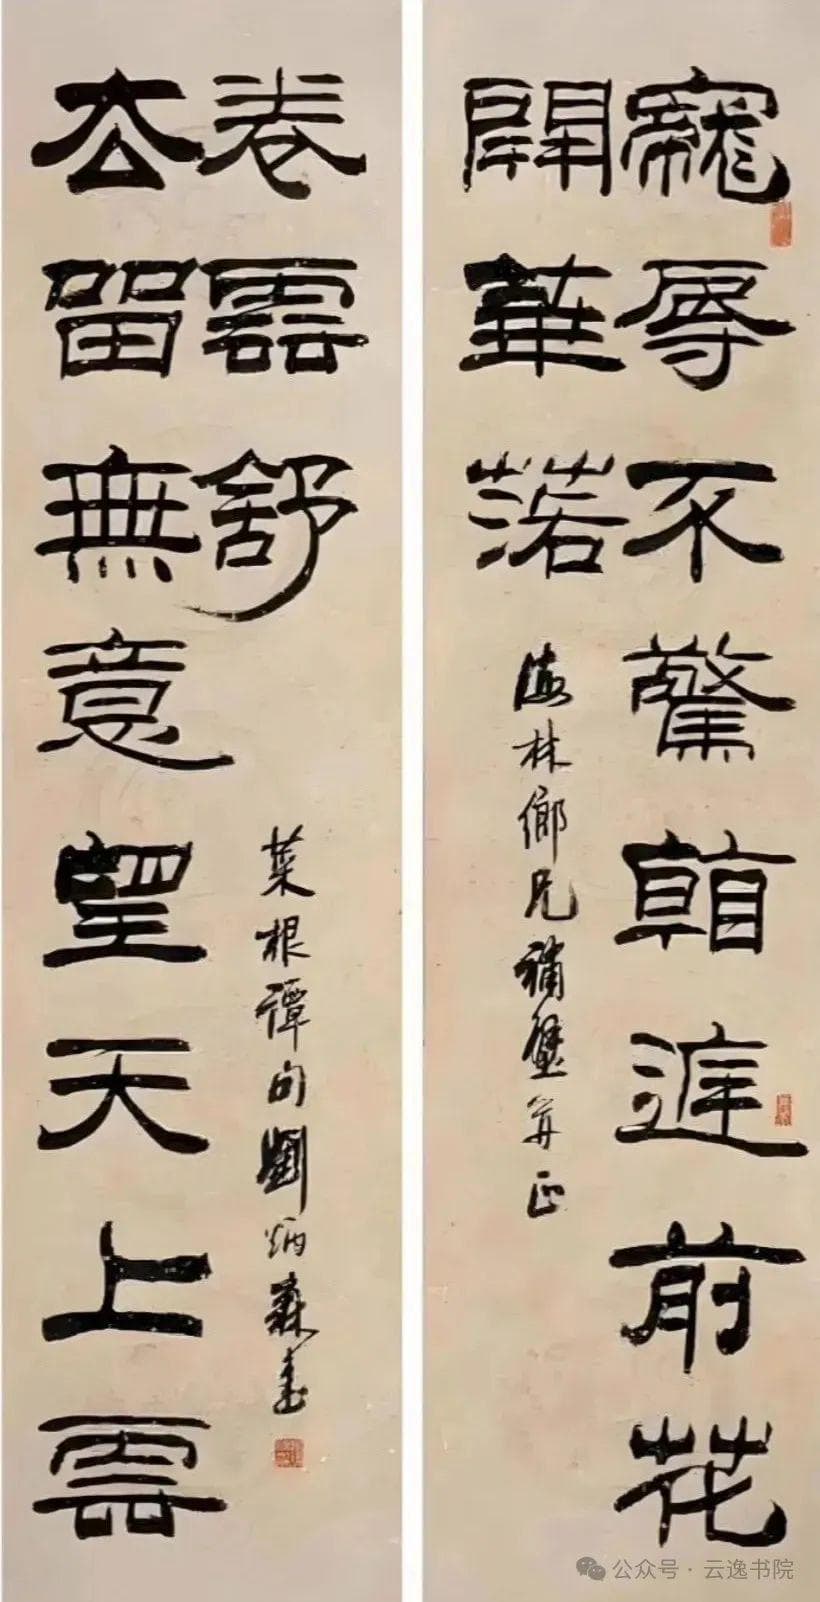 寵辱不驚看庭前花
開華落
海林鄉兄補壁並正
去留無意望天上雲
卷雲舒
菜根譚句劉炳森書
公众号·云逸书院